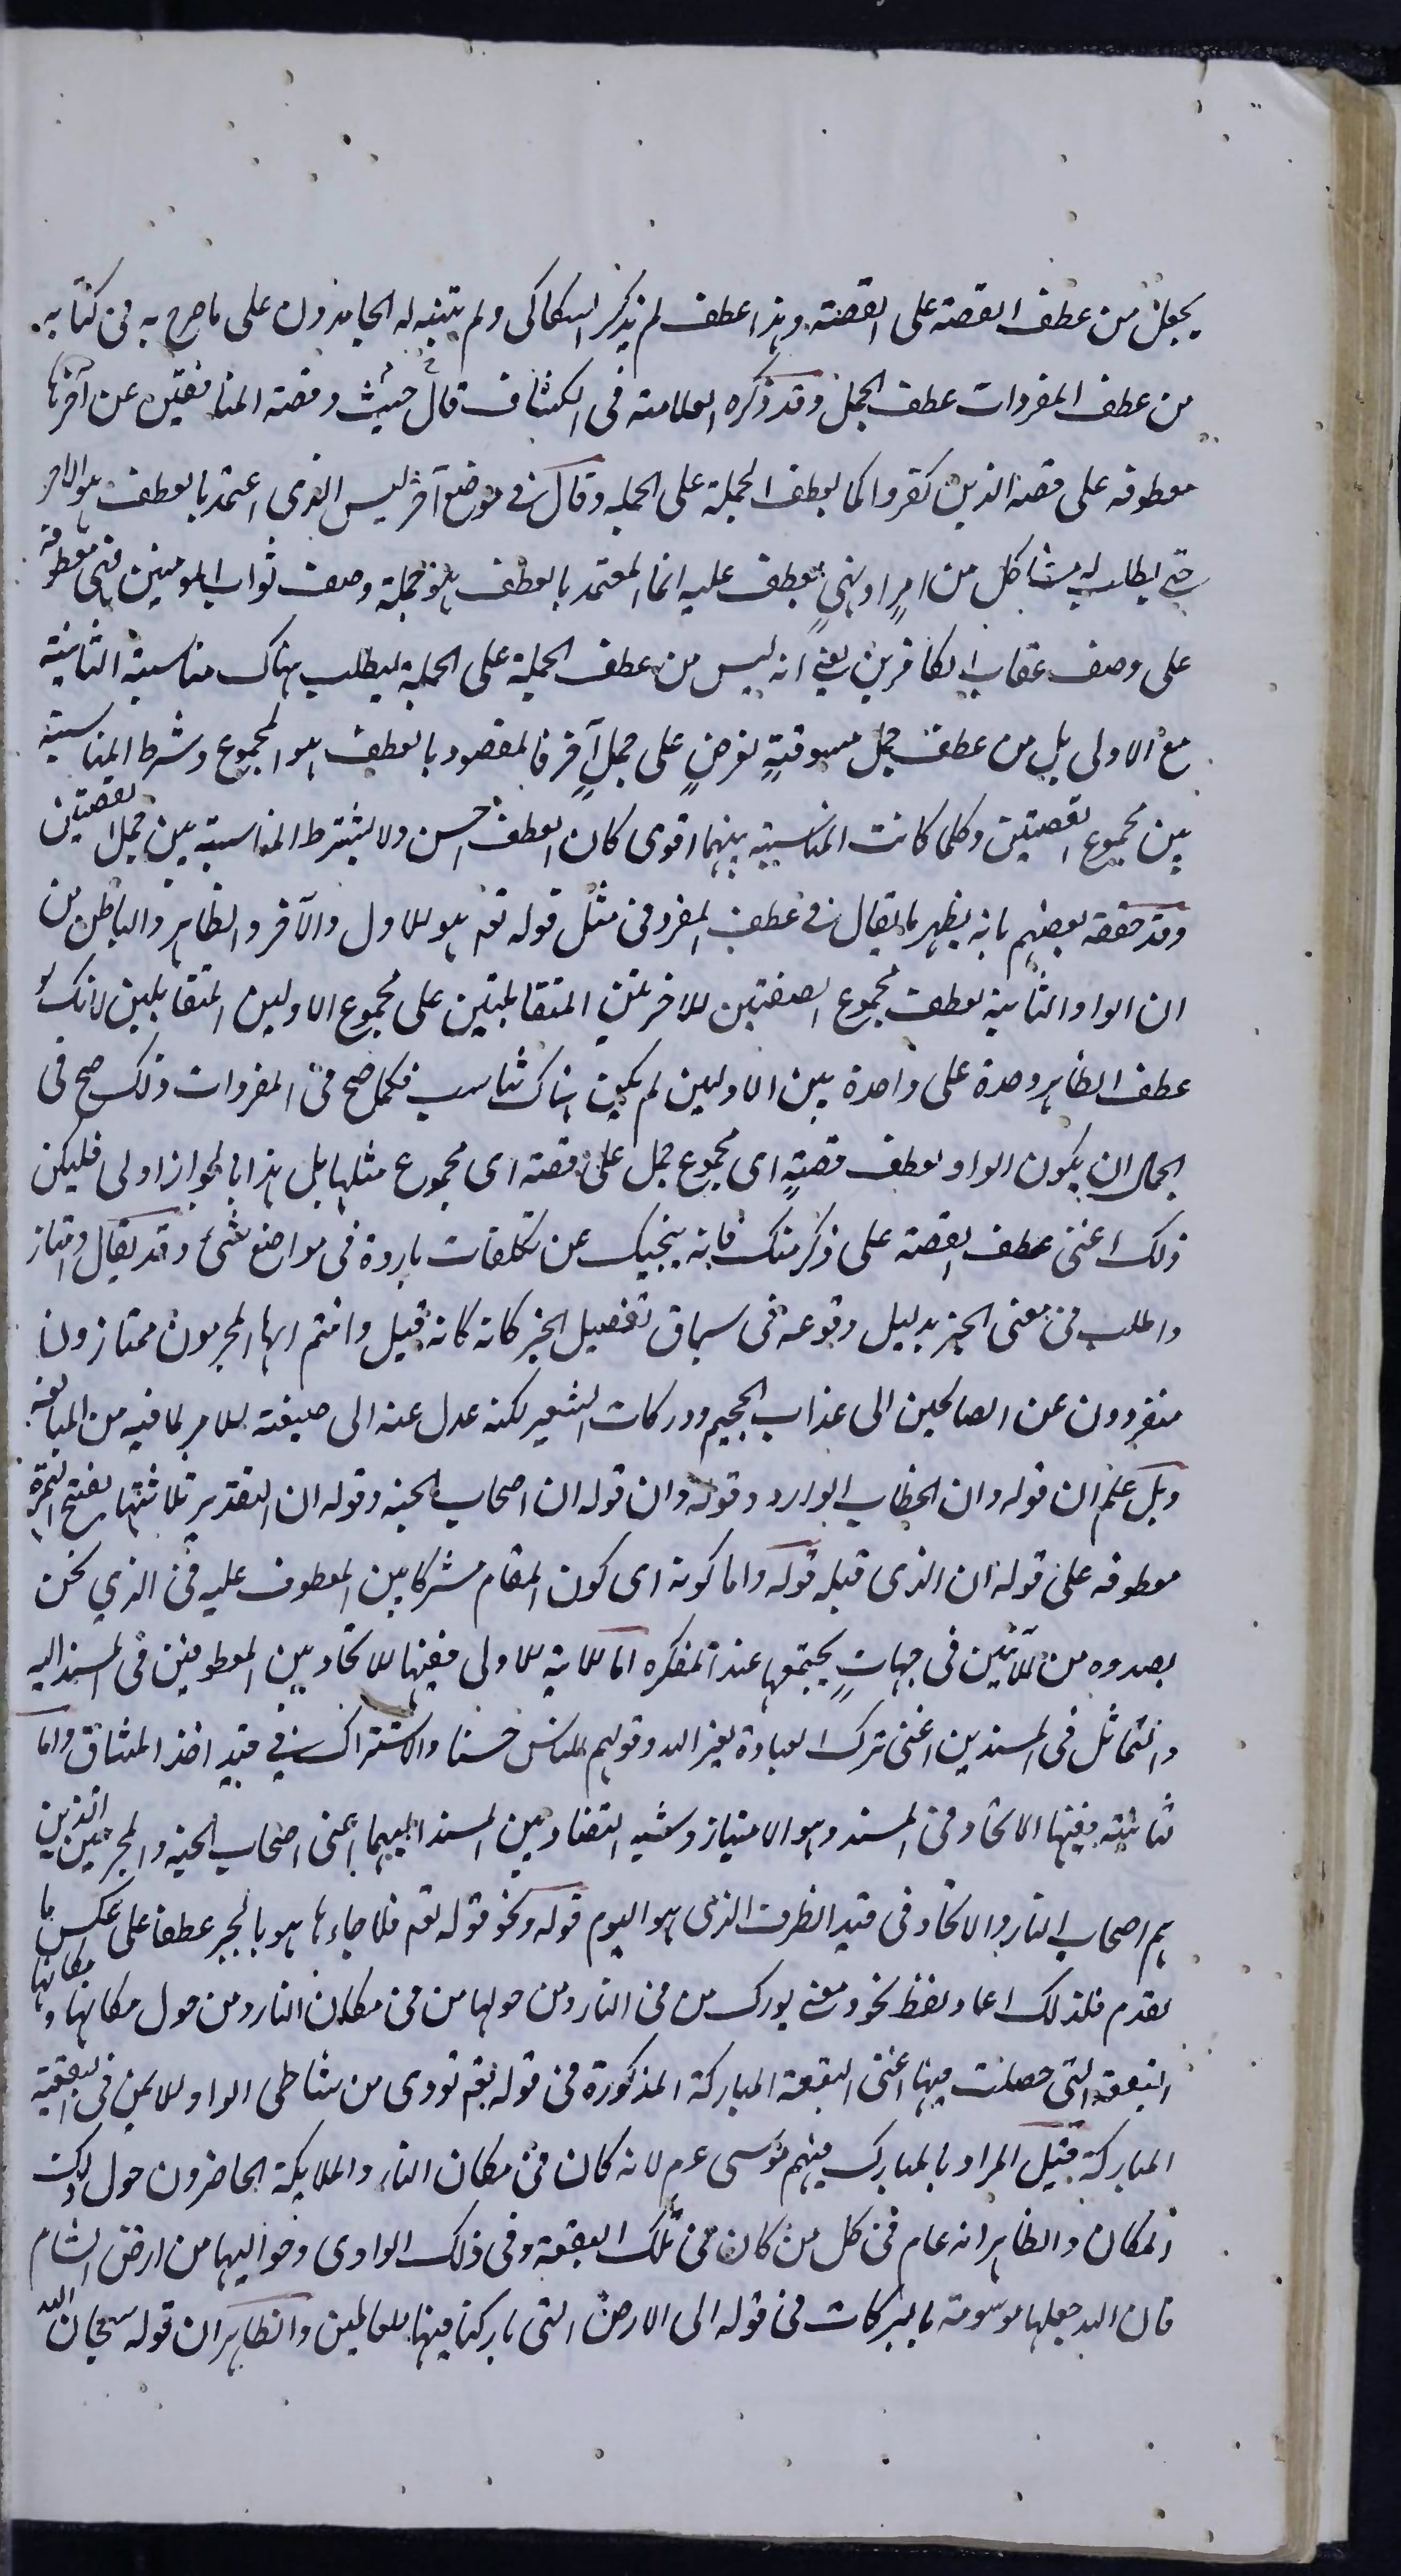 يجعل من عطف القصة على القصة وهذا عطف لم يذكر السكاكى ولم يتنبه له الجامدون على ما صرح به فى كتابه
من عطف المفردات عطف الجمل وقد ذكره العلامة فى الكشاف قال حيث وقصة المنافقين عن آخرها
معطوفه على قصة الذين كفروا كما يعطف الجملة على الجمله وقال فى موضع آخر ليس الذى اعتمد بالعطف هو الامر
حتى يطلب له مشاكل من امرٍ او نهىٍ يعطف عليه انما المعتمد بالعطف هو جملة وصف ثواب المومنين فهى معطوفة
على وصف عقاب الكافرين يعنى انه ليس من عطف الجملة على الجملة ليطلب هناك مناسبة الثانية
مع الاولى بل من عطف جمل مسوقةٍ لغرضٍ على جملٍ آخر فالمقصود بالعطف هو المجموع وشرط المناسبة
بين مجموع القصتين وكلما كانت المناسبة بينهما اقوى كان العطف احسن ولا يشترط المناسبة بين جمل القصتين
وقد حققه بعضهم بانه يظهر ما يقال فى عطف المفرد فى مثل قوله تعه هو الاول والآخر والظاهر والباطن من
ان الواو الثانية لعطف مجموع الصفتين الاخرتين المتقابلتين على مجموع الاولين المتقابلين لانك لو
عطف الظاهر وحده على واحدة بين الاولين لم يكن هناك تناسب فكما صح فى المفردات ذلك صح فى
الجمال ان يكون الواو لعطف قصةٍ اى مجموع جمل على قصته اى مجموع مثلها بل هذا بالجواز اولى فليكن
ذلك اعنى عطف القصة على ذكر منك فانه ينجيك عن تكلفات باردة فى مواضع شتى وقد يقال وامتاز
والطلب فى معنى الخبر بدليل وقوعه فى سياق تفصيل الخبر كانه كانه قيل وانتم ايها المجرمون ممتازون
منفردون عن الصالحين الى عذاب الجحيم ودركات السعير لكنه عدل عنه الى صيغة الامر لما فيه من المبالغة
وبل علم ان قوله وان الخطاب الوارد وقوله وان قوله ان اصحاب الجنه وقوله ان التقدير ثلاثتها بفتح الهمزة
معطوفه على قوله ان الذى قبله قوله واما كونه اى كون المقام مشركا بين المعطوف عليه فى الذي نحن
بصدده من الآيتين فى جهاتٍ يجتمعها عند المفكره اما الاية الاولى ففيها الاتحاد بين المعطوفين فى المسند اليه
والتماثل فى المسندين اعنى ترك العبادة لغير الله وقولهم للناس حسنا والاشتراك فى قيد اخذ الميثاق واما
ثانيته ففيها الاتحاد فى المسند وهو الامتياز وشبه التضاد بين المسند اليهما اعنى اصحاب الجنه والمجرمين الذين
هم اصحاب النار والاتحاد فى قيد الظرف الذى هو اليوم قوله ونحو قوله تعه فلما جاءها هو بالجر عطفا على عكس ما
تقدم فلذلك اعاد لفظ نحو ومعنى بورك من فى النار ومن حولها من فى مكان النار ومن حول مكانها ومكانها
البقعة التى حصلت فيها اعنى البقعة المباركة المذكورة فى قوله تعه نودى من شاطى الواد الايمن فى البقعة
المباركة قيل المراد بالمبارك فيهم موسى عم لانه كان فى مكان النار والملايكة الحاضرون حول ذلك
المكان والظاهر انه عام فى كل من كان فى تلك البقعة وفى ذلك الوادى وحواليها من ارض الشام
فان الله جعلها موسومة بالبركات فى قوله الى الارض التى باركنا فيها للعالمين والظاهر ان قوله سبحان الله